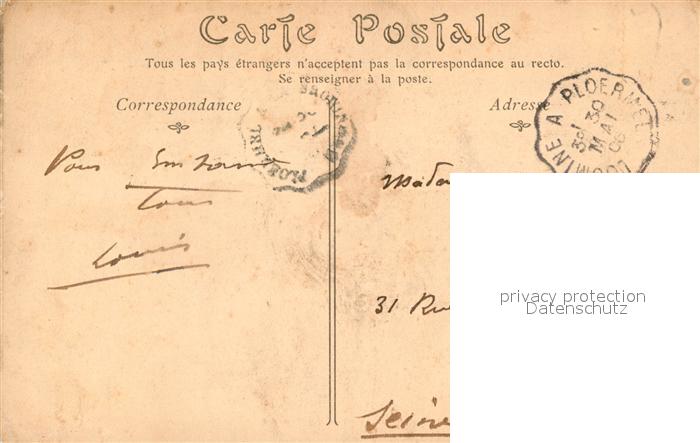 Carte Postale
Tous les pays étrangers n'acceptent pas la correspondance au recto.
Se renseigner à la poste.
Correspondance
Adresse
LOCMINE A PLOERMEL
30
MAI
Tous
Louis
31 Rue
Seine
privacy protection
Datenschutz